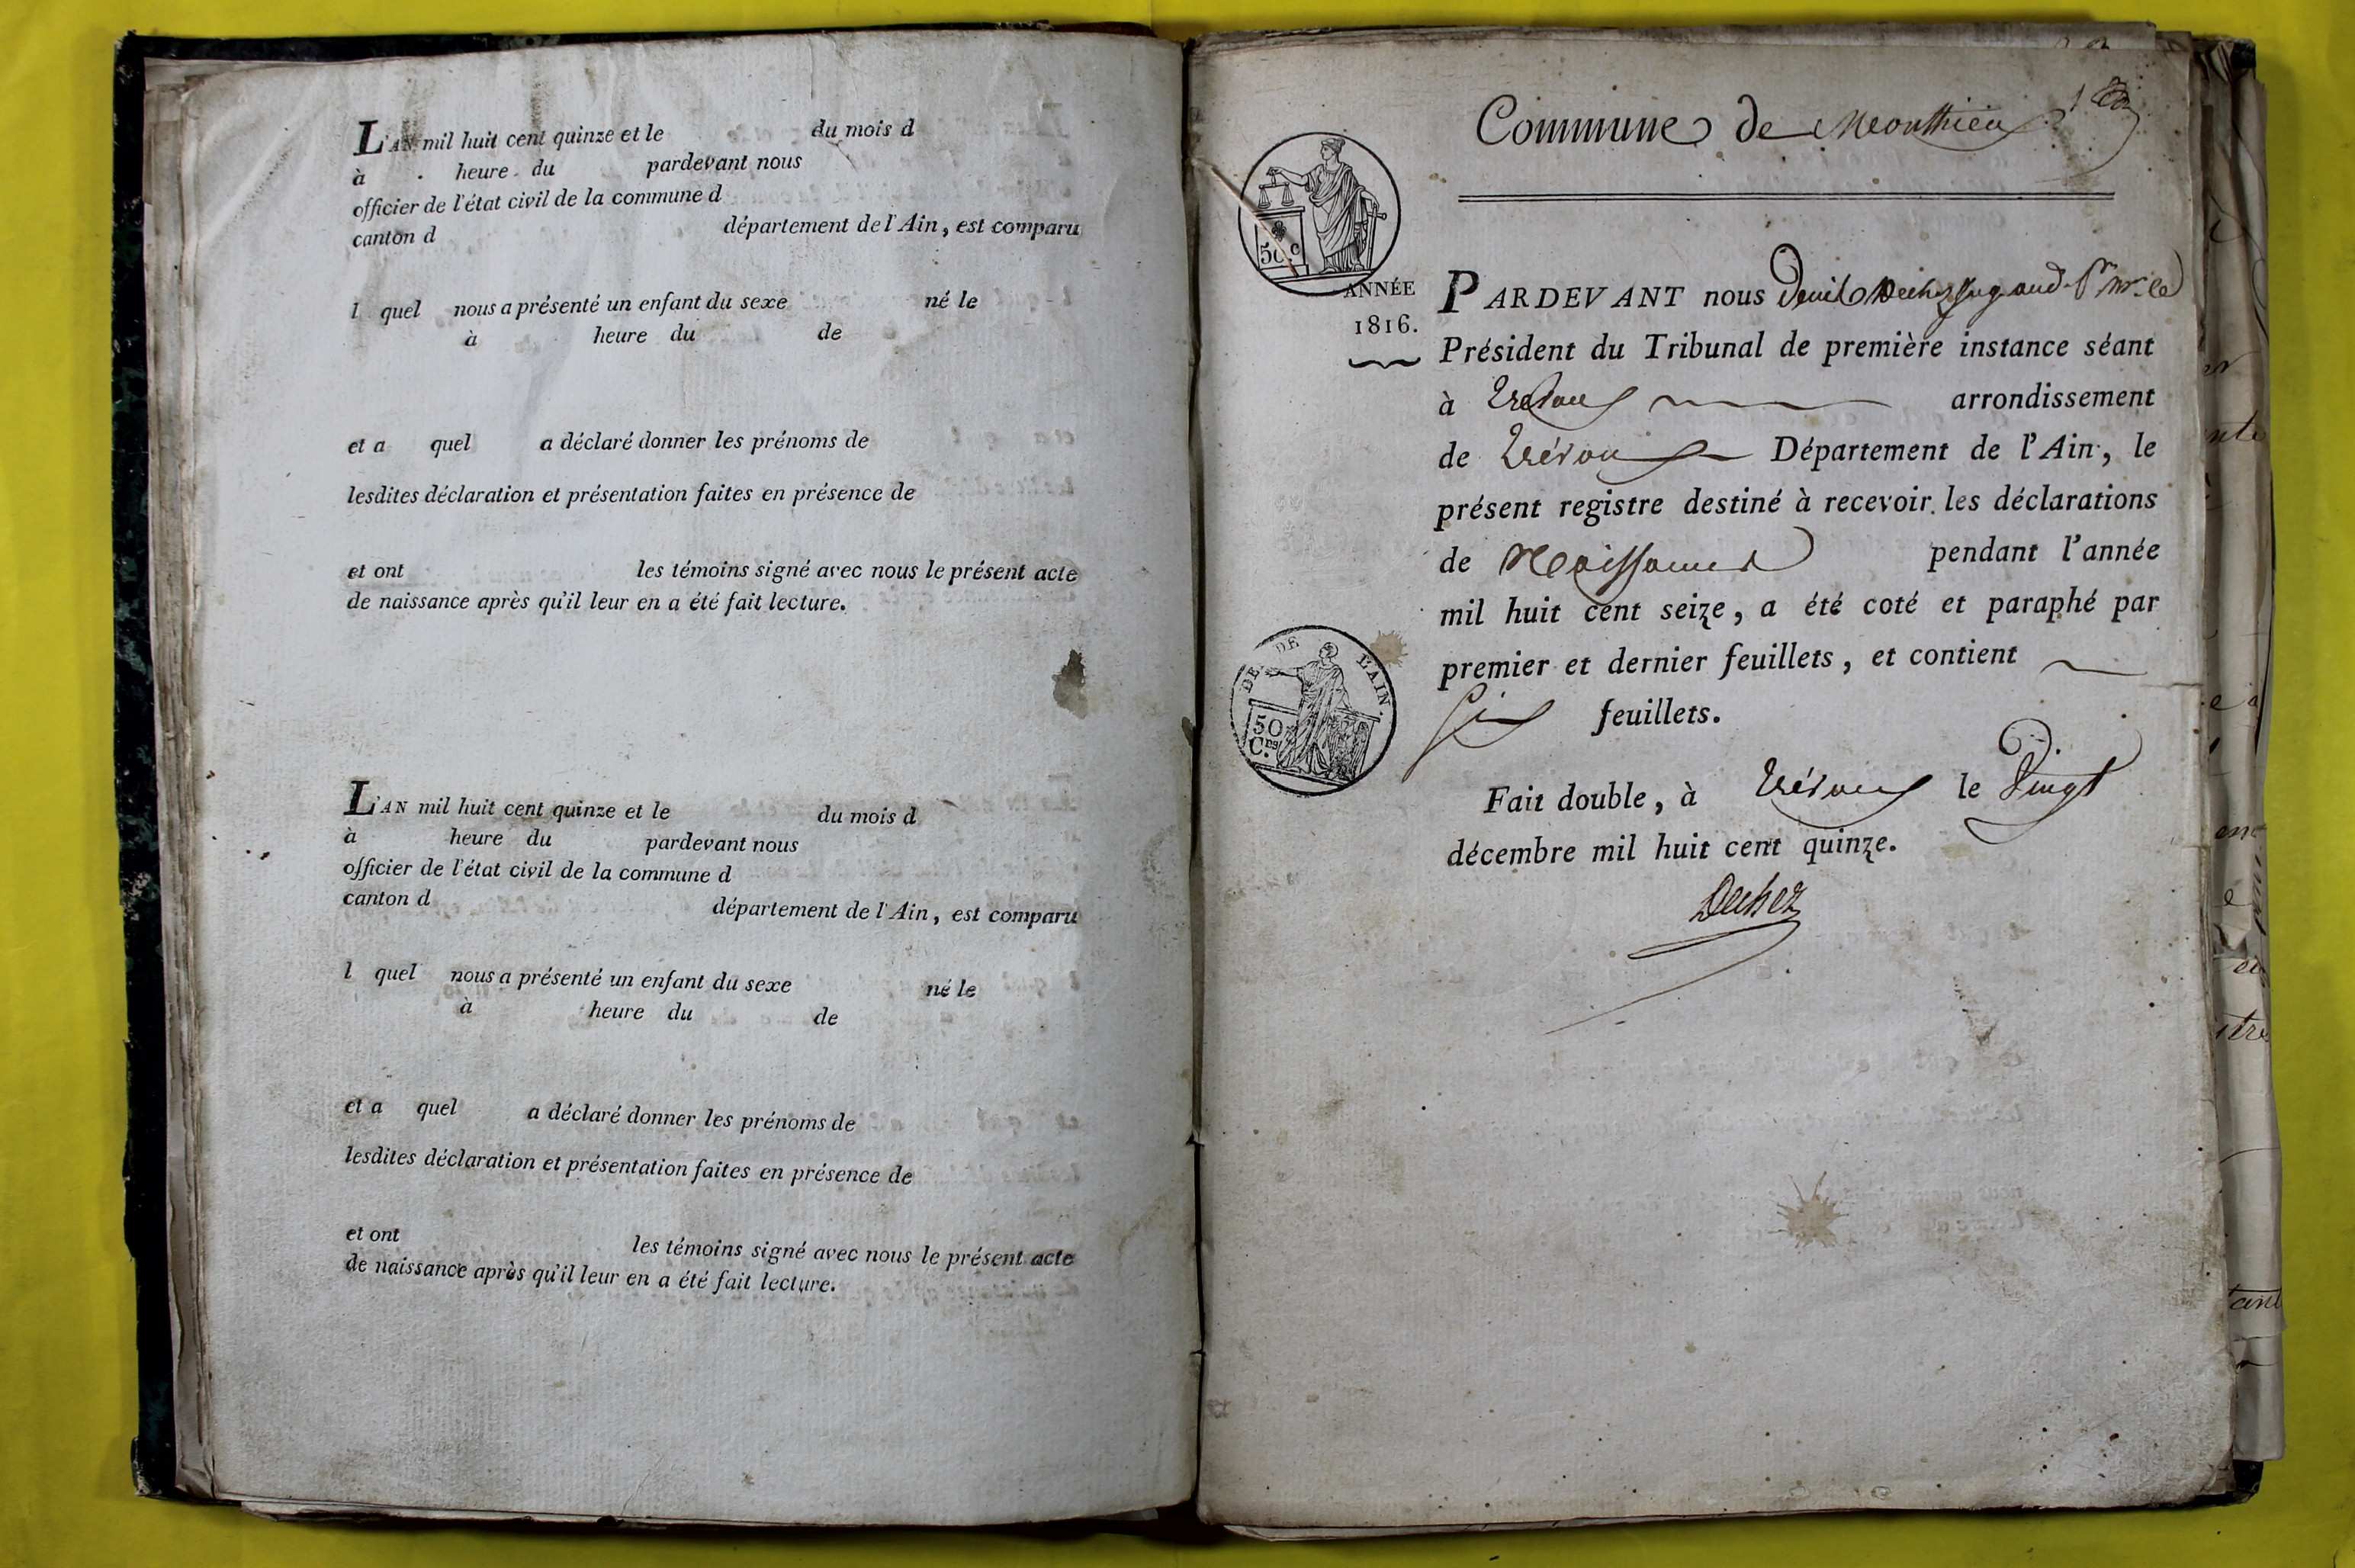 L'AN mil huit cent quinze et le du mois d
à heure du pardevant nous
officier de l'état civil de la commune d
canton d département de l'Ain, est comparu
l quel nous a présenté un enfant du sexe né le
à heure du de
et a quel a déclaré donner les prénoms de
lesdites déclaration et présentation faites en présence de
et ont les témoins signé avec nous le présent acte
de naissance après qu'il leur en a été fait lecture.
L'AN mil huit cent quinze et le du mois d
à heure du pardevant nous
officier de l'état civil de la commune d
canton d département de l'Ain, est comparu
l quel nous a présenté un enfant du sexe né le
à heure du de
et a quel a déclaré donner les prénoms de
lesdites déclaration et présentation faites en présence de
et ont les témoins signé avec nous le présent acte
de naissance après qu'il leur en a été fait lecture.
Commune de Monthieu
50 c
ANNÉE
1816.
PARDEVANT nous Dechez Juge
Président du Tribunal de première instance séant
à Trévoux arrondissement
de Trévoux Département de l'Ain, le
présent registre destiné à recevoir les déclarations
de Naissances pendant l'année
mil huit cent seize, a été coté et paraphé par
premier et dernier feuillets, et contient
Six feuillets.
DE DE L'AIN.
50
C.ES
Fait double, à Trévoux le Vingt
décembre mil huit cent quinze.
Dechez